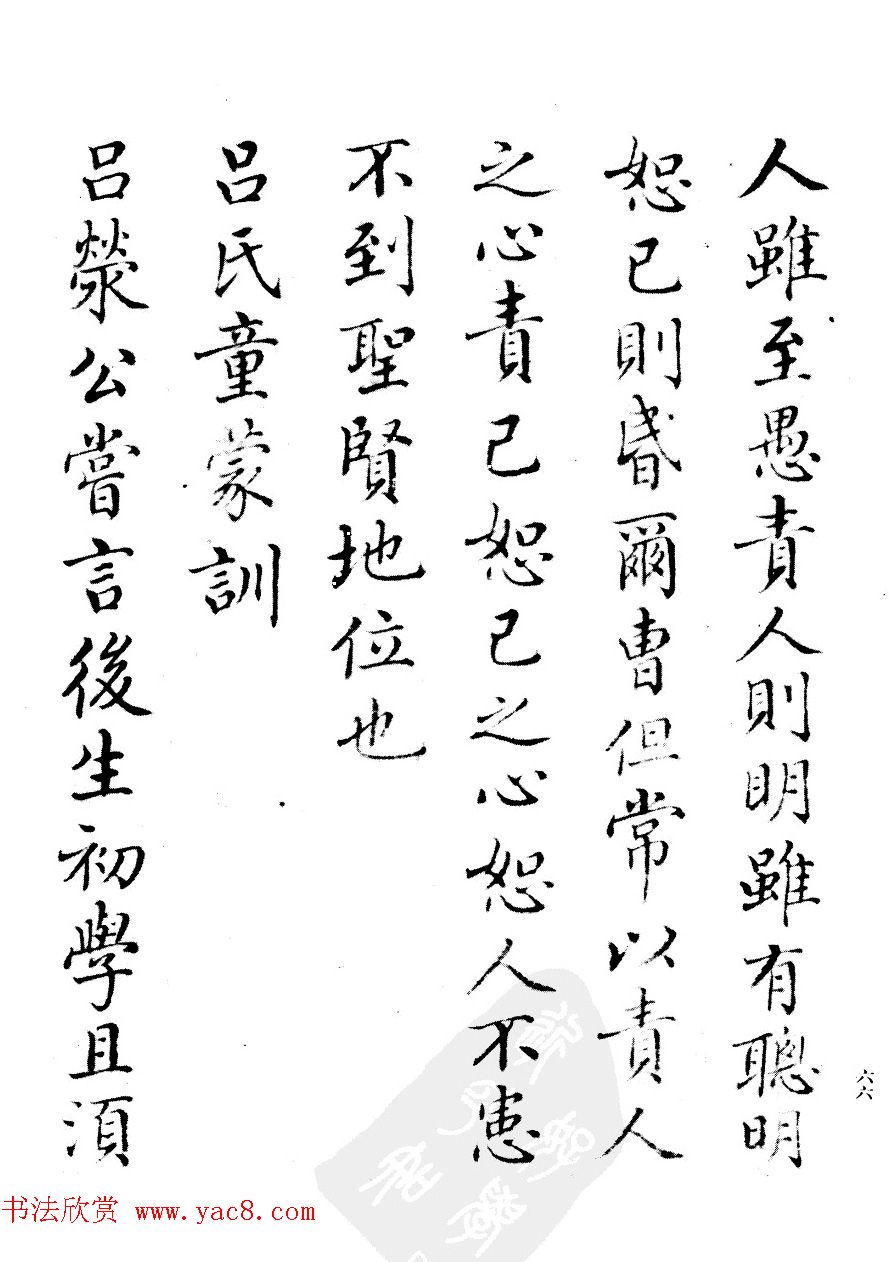 人雖至愚責人則明雖有聰明
恕己則昏爾曹但常以責人
之心責己恕己之心恕人不患
不到聖賢地位也
呂氏童蒙訓
呂滎公嘗言後生初學且須
六六
书法欣赏 www.yac8.com